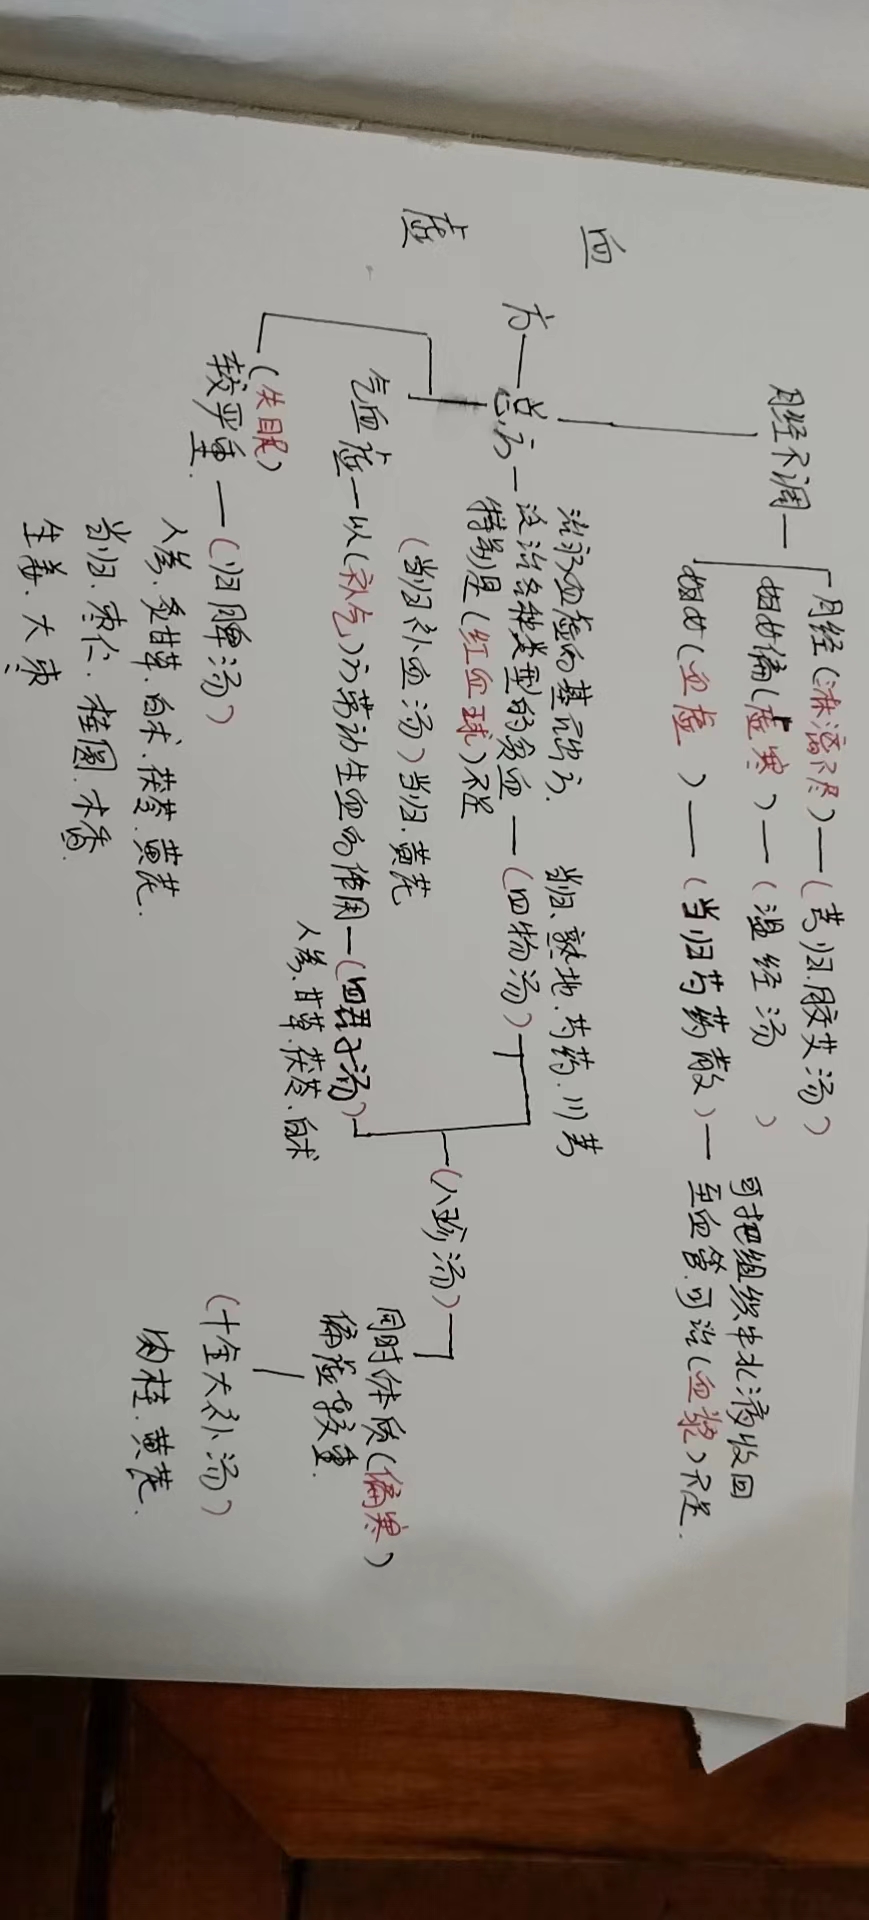 血
虚
方
总方
月经不调
月经(淋漓不尽)—(芎归胶艾汤)
妇女偏(虚寒)—(温经汤)
妇女(血虚)—(当归芍药散)—
可把组织中水液收回
至血管.可治(血浆)不足.
治疗血虚的基础方.
泛治各种类型的贫血—(四物汤)
特别是(红血球)不足
当归、熟地.芍药.川芎
(当归补血汤)当归.黄芪
气血虚—以(补气)方带动生血的作用—(四君子汤)
人参.甘草.茯苓.白术
(八珍汤)
同时体质(偏寒)
偏虚较重.
(十全大补汤)
肉桂.黄芪.
(失眠)
较严重.—(归脾汤)
人参.炙甘草.白术.茯苓.黄芪.
当归.枣仁.桂圆.木香.
生姜.大枣